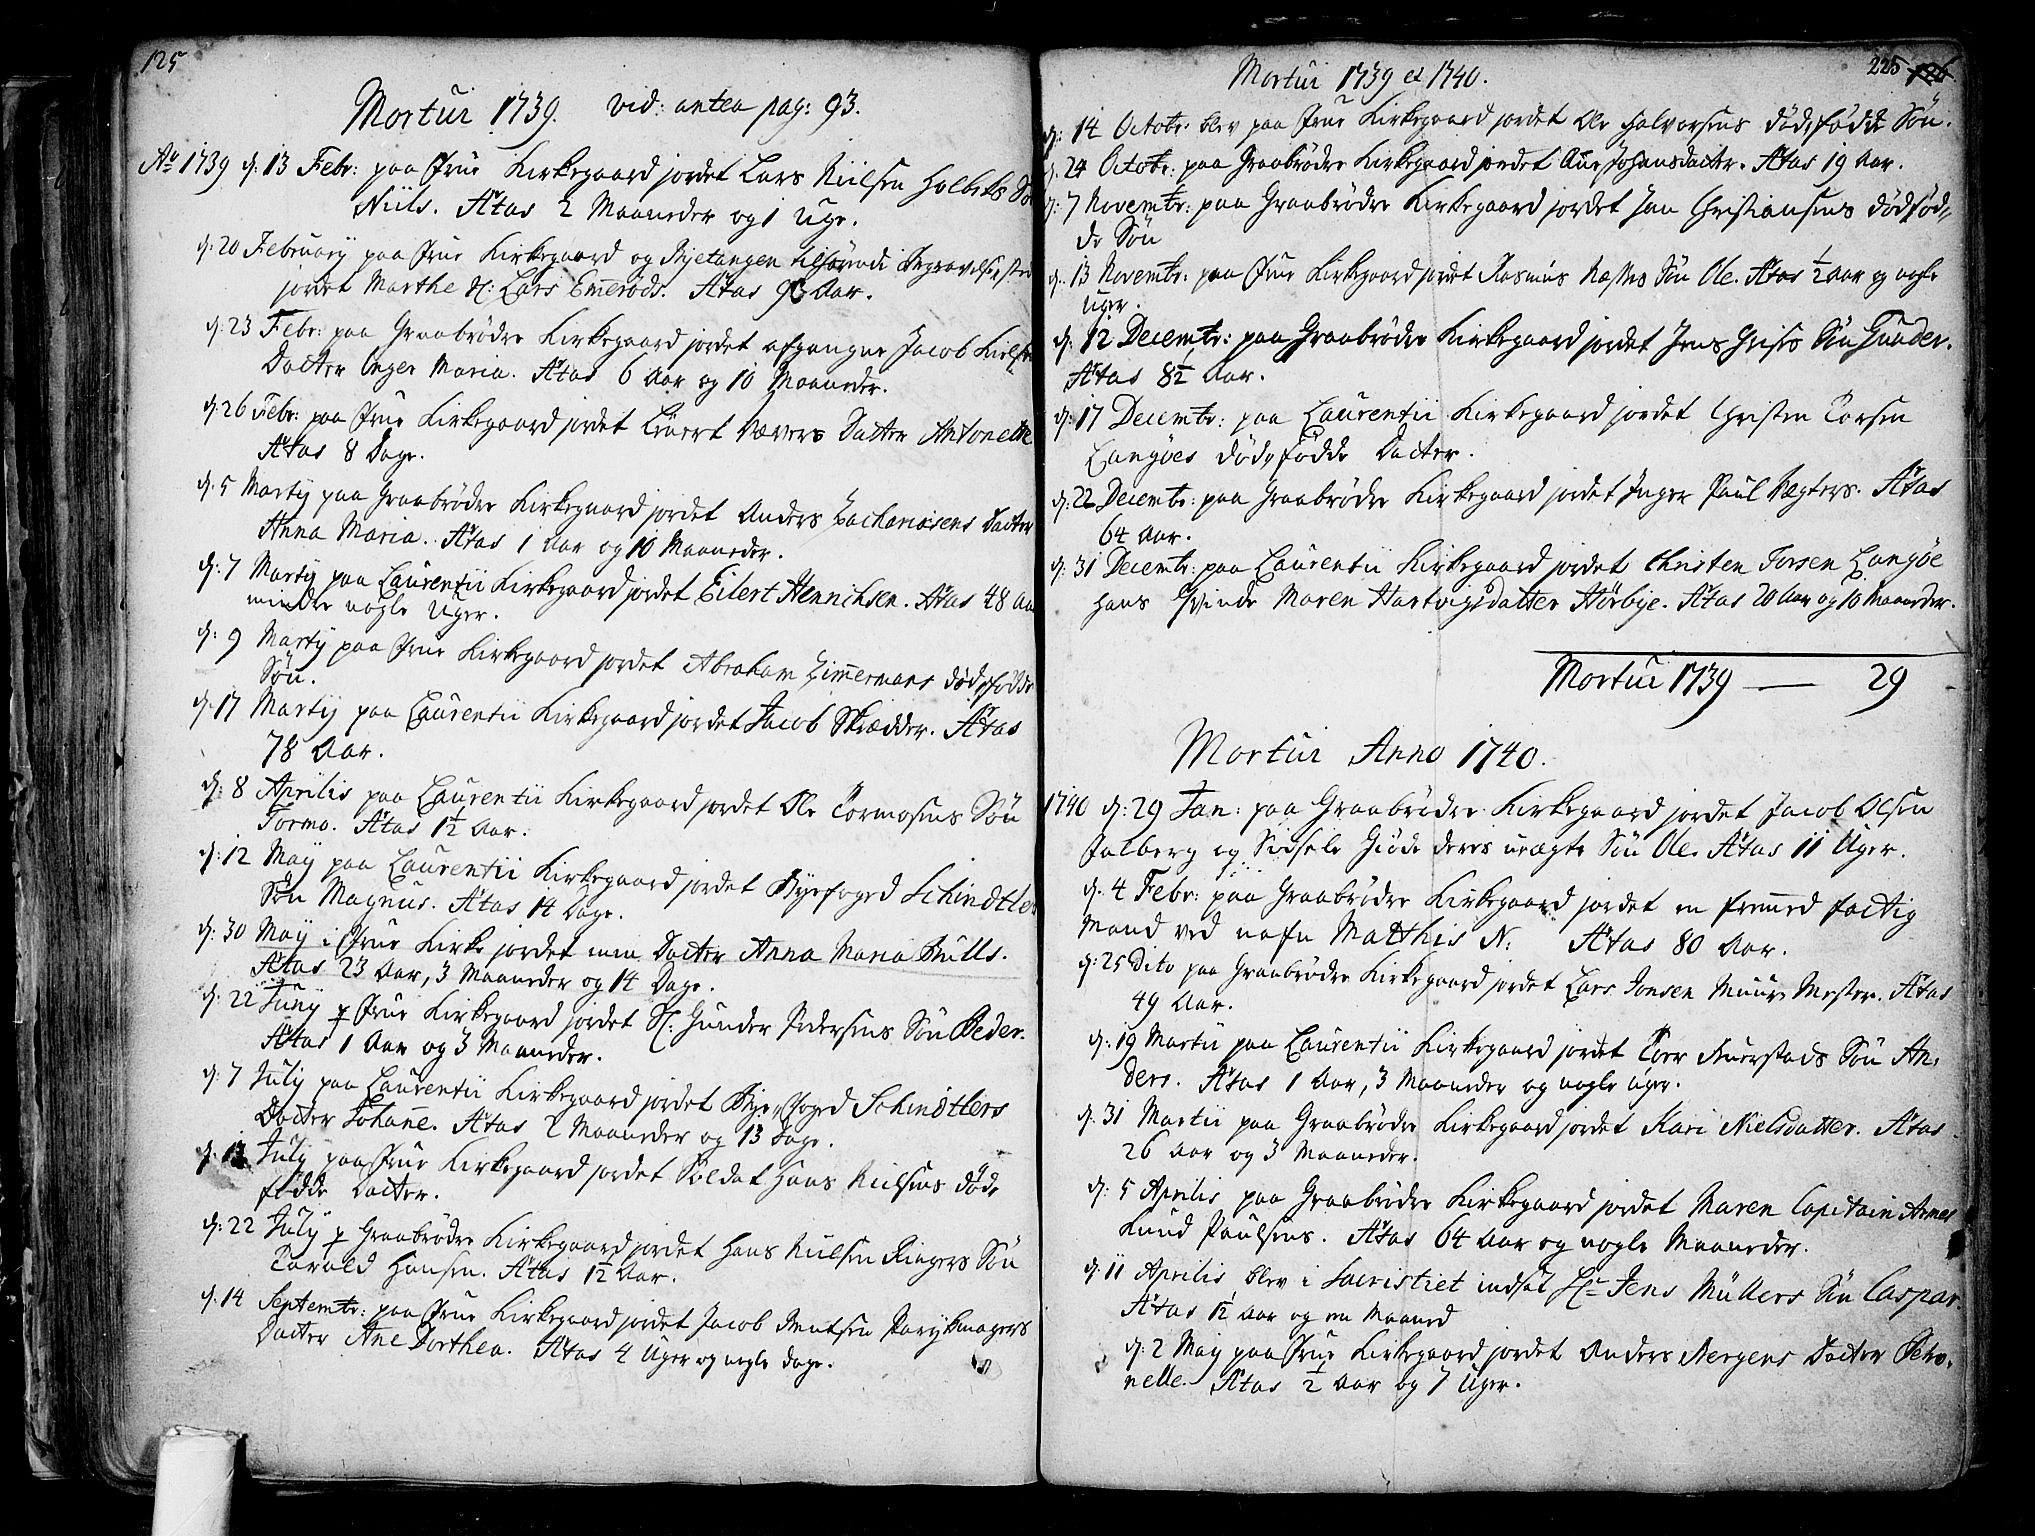 125
Mortui 1739. vid: antea pag: 93.
Ao 1739 d: 13 Febr: paa Frue Kirkegaard jordet Lars Niilsen Holbeks Sø
Niils. Ætas 2 Maaneder og 1 Uge.
d: 20 February paa Frue Kirkegaard og
jordet Marthe Sl: Lars Emerods. Ætas Aar.
d: 23 Febr: paa Graabrødre Kirkegaard jordet afgangne Jacob
Datter Inger Maria. Ætas 6 Aar og 10 Maaneder.
d: 26 Febr: paa Frue Kirkegaard jordet Linert Vævers Datter Antonette
Ætas 8 Dage.
d: 5 Martij paa Graabrødre Kirkegaard jordet Anders Zachariæsens Datter
Anna Maria. Ætas 1 Aar og 10 Maaneder.
d: 7 Martij paa Laurentii Kirkegaard jordet Eilert Henrichsen. Ætas 48 Aa
mindre nogle Uger.
d: 9 Martij paa Frue Kirkegaard jordet Abraham Zimermans dødfødde
Søn.
d: 17 Martij paa Laurentii Kirkegaard jordet Jacob Skrædder. Ætas
78 Aar.
d: 8 Aprilis paa Laurentii Kirkegaard jordet Ole Tormosens Søn
Tormo. Ætas 1½ Aar.
d: 12 Maij paa Laurentii Kirkegaard jordet Byefoged Schindtler
Søn Magnus. Ætas 14 Dage.
d: 30 Maij i Frue Kirke jordet min Datter Anna Maria Bulls.
Ætas 23 Aar, 3 Maaneder og 14 Dage.
d: 22 Junij p Frue Kirkegaard jordet Sl: Gunder Pedersens Søn Peder.
Ætas 1 Aar og 3 Maaneder.
d: 7 July paa Laurentii Kirkegaard jordet Bye-foged Schindtlers
Datter Johane. Ætas 2 Maaneder og 13 Dage.
d: July paa Frue Kirkegaard jordet Soldat Hans Nielsens død-
fødde Datter.
d: 22 July p Graabrødre Kirkegaard jordet Hans Nielsen Ringers Søn
Torald Hansen. Ætas 1½ Aar.
d: 14 Septembr: paa Frue Kirkegaard jordet Jacob Bentsen Parykmagers
Datter Ane Dorthea. Ætas 4 Uger og nogle dage.
225 126
Mortui 1739 et 1740.
d: 14 Octobr: blev paa Frue Kirkegaard jordet Ole Halvorsens dødfødde Søn.
d. 24 Octobr: paa Graabrødre Kirkegaard jordet Ane Johansdatter. Ætas 19 Aar.
d: 7 Novembr: paa Graabrødre Kirkegaard jordet Jan Christiansens dødfød-
de Søn
d. 13 Novembr: paa Frue Kirkegaard jordet Rasmus Næstes Søn Ole. Ætas ½ Aar og nogle
Uger.
d. 12 Decembr: paa Graabrødre Kirkegaard jordet Jens Grises Søn Gunder.
Ætas 8½ Aar.
d: 17 Decembr: paa Laurentii Kirkegaard jordet Christen Torsen
Langøes dødfødde Datter.
d: 22 Decembr: paa Graabrødre Kirkegaard jordet Inger Paul Vegters. Ætas
64 Aar.
d: 31 Decembr: paa Laurentii Kirkegaard jordet Christen Torsen Langøe
hans Qvinde Maren Hartvigsdatter Hørbye. Ætas 20 Aar og 10 Maaneder.
Mortui 1739 — 29
Mortui Anno 1740.
1740 d: 29 Jan: paa Graabrødre Kirkegaard jordet Jacob Olsen
Jalberg og Sidsele Giøde deres uægte Søn Ole. Ætas 11 Uger.
d. 4 Febr: paa Graabrødre Kirkegaard jordet en fremed fattig
Mand ved nafn Matthis N: Ætas 80 Aar.
d: 25 Dito paa Graabrødre Kirkegaard jordet Lars Jonsen Muur-Mester. Ætas
49 Aar.
d: 19 Martii paa Laurentii Kirkegaard jordet Tore Ruerstads Søn An-
ders. Ætas 1 Aar, 3 Maaneder og nogle Uger.
d: 31 Martii paa Graabrødre Kirkegaard jordet Kari Nielsdatter. Ætas
26 Aar og 3 Maaneder.
d: 5 Aprilis paa Graabrødre Kirkegaard jordet Maren Capitain Armes
Knud Paulsens. Ætas 64 Aar og nogle Maaneder.
d: 11 Aprilis blev i Sacristiet indsat Hr Jens Müllers Søn Caspar.
Ætas 1½ Aar og en Maaned
d: 2 Maij paa Frue Kirkegaard jordet Anders Bergens Datter Petro-
nelle. Ætas ½ Aar og 7 Uger.